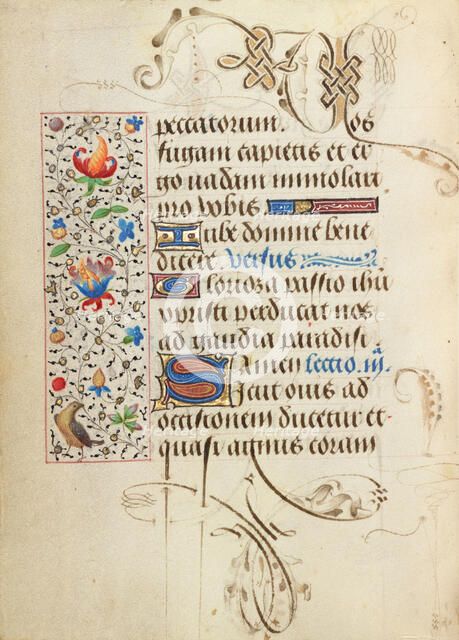 peccatorum. Vos
fugam capietis et er
go vadam immolari
pro vobis
Iube domine bene
dicere. versus
Gloriosa passio ihu
xpristi perducat nos
ad gaudia paradisi.
Amen lectio. iii.
Sicut ovis ad
occisionem ducetur et
quasi agnus coram